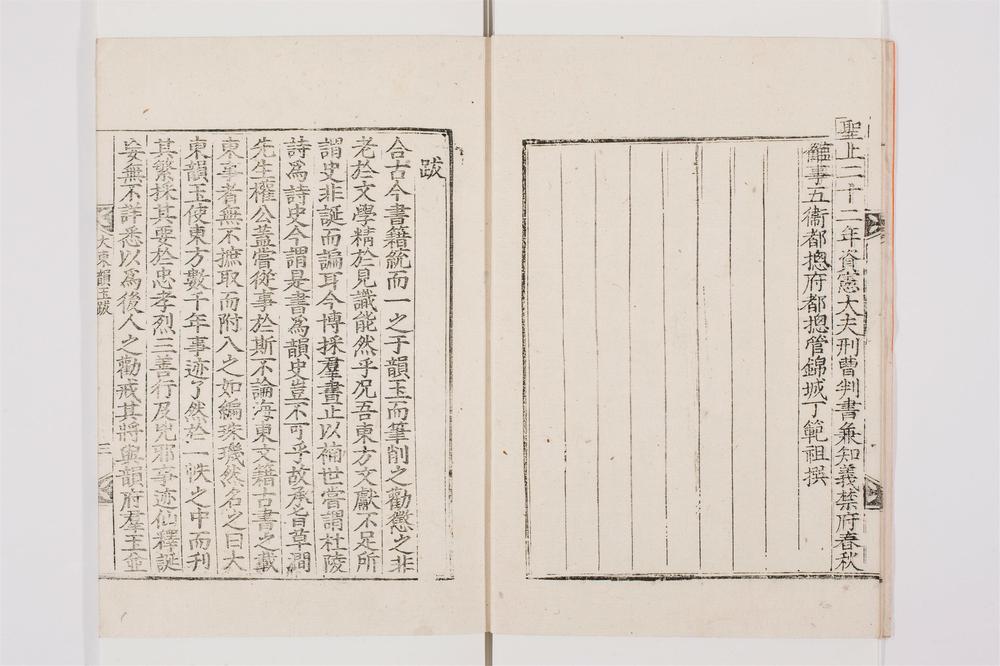 聖上二十二年資憲大夫刑曹判書兼知義禁府春秋
館事五衛都摠府都摠管錦城丁範祖撰
跋
合古今書籍統而一之于韻玉而筆削之勸懲之非
老於文學精於見識能然乎况吾東方文獻不足所
謂史非誕而諞耳今博採羣書止以補世嘗謂杜陵
詩爲詩史今謂是書爲韻史豈不可乎故承旨草澗
先生權公蓋嘗從事於斯不論海東文籍古書之載
東事者無不摭取而附入之如編珠璣然名之曰大
東韻玉使東方數千年事迹了然於一帙之中而刊
其繁採其要於忠孝烈三善行及兇邪事迹仙釋誕
妄無不詳悉以爲後人之勸戒其將與韻府羣玉並
大東韻玉跋
三